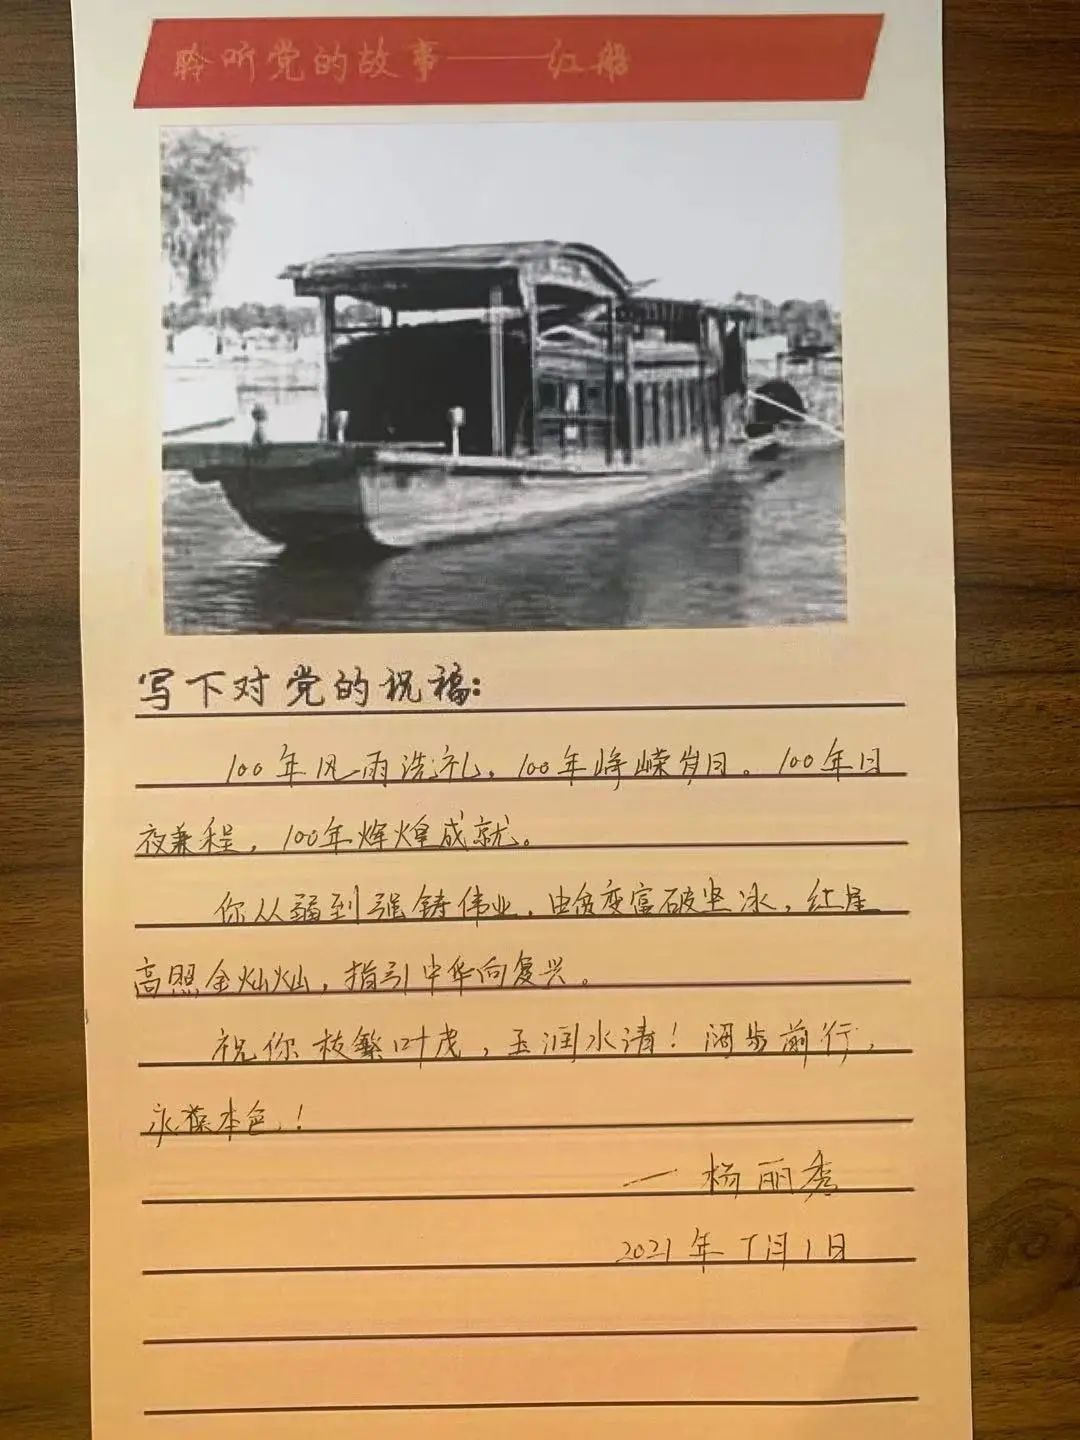 聆听党的故事——红船
写下对党的祝福:
100年风雨洗礼，100年峥嵘岁月。100年日
夜兼程，100年辉煌成就。
你从弱到强铸伟业，由贫变富破坚冰，红星
高照金灿灿，指引中华向复兴。
祝你枝繁叶茂，玉润水清！阔步前行，
永葆本色！
—杨丽秀
2021年7月1日